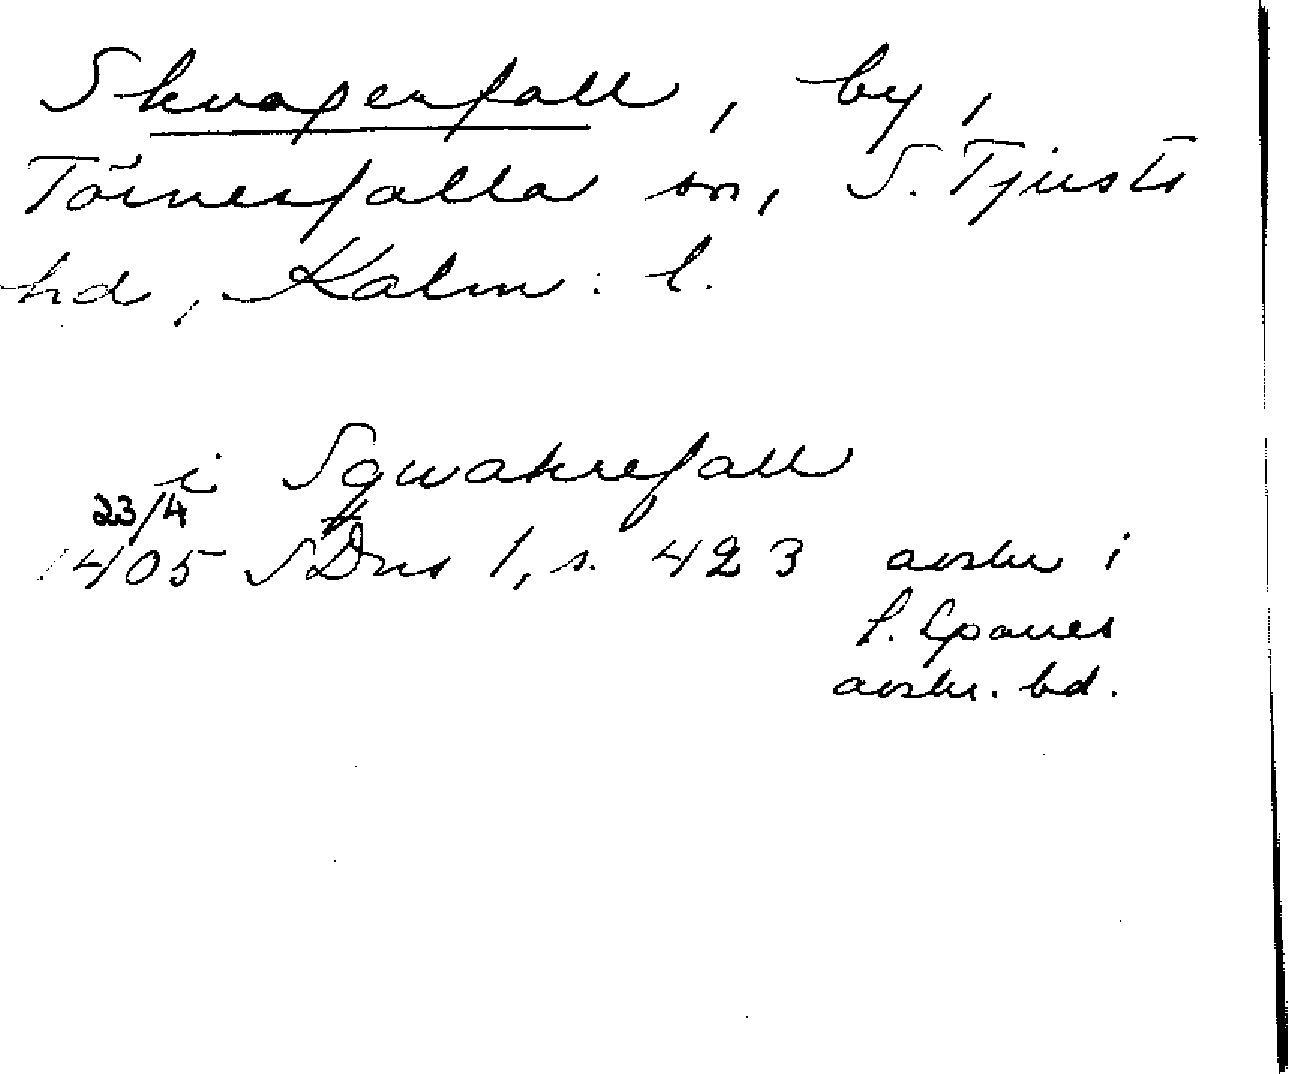 Skvagerfall, by,
Törnesfalla sn, S. Tjusts
hd, Kalm. l.
i Sqwakrefall
23/4
1405 SDns 1, s. 423 avskr i
avskr. bd.